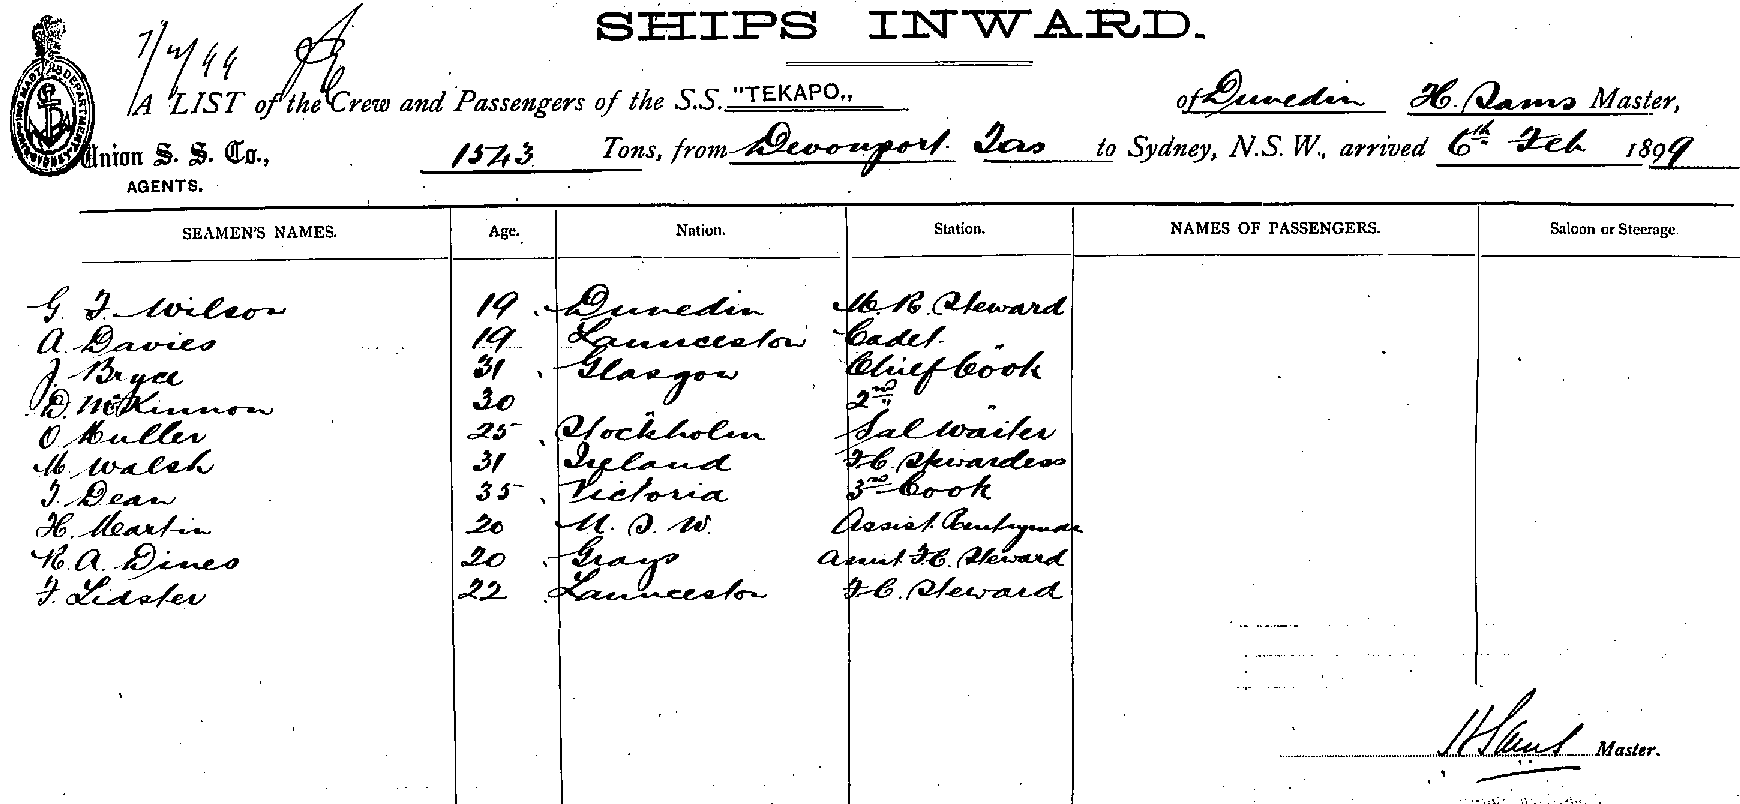 SHIPS INWARD.
7/2/99
A LIST of the Crew and Passengers of the S.S. "TEKAPO," of Dunedin H. Sams Master,
Union S. S. Co., 1543 Tons, from Devonport Tas to Sydney, N.S.W., arrived 6th Feb 1899
AGENTS.
SEAMEN'S NAMES. Age. Nation. Station. NAMES OF PASSENGERS. Saloon or Steerage.
G. F. Wilson 19 Dunedin M. R. Steward
A Davies 19 Launceston Cadet.
J. Bryce 31 Glasgow Chief Cook
D. McKinnon 30 " 2nd "
O Muller 25 Stockholm Sal Waiter
M. Walsh 31 Ireland F.C. Stewardess
F. Dean 35 Victoria 3rd Cook
H. Martin 20 N. S. W. Assist. Pantryman
R. A. Dines 20 Grays Assist F.C. Steward
F. Lidster 22 Launceston F.C. Steward
H Sams Master.